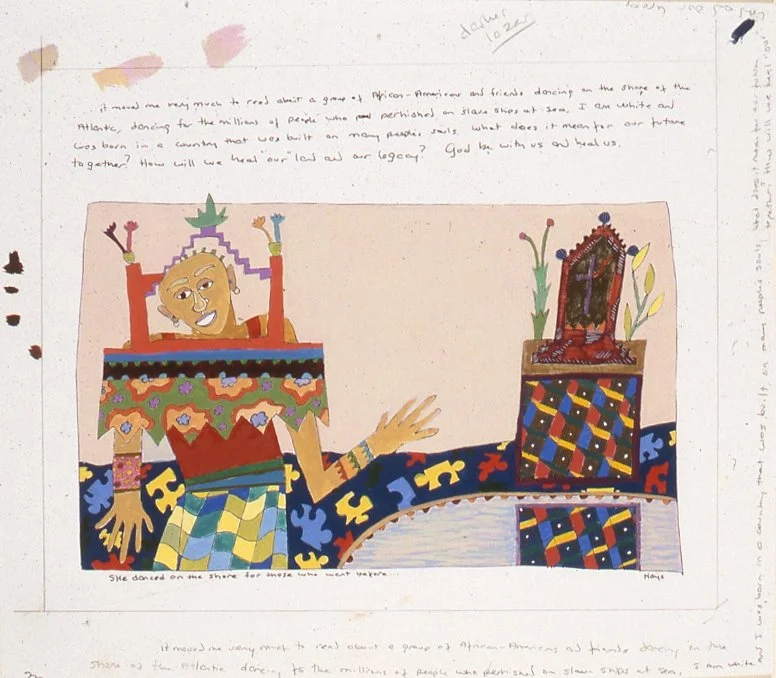 darker
lazer
it moved me very much to read about a group of African-Americans and friends dancing on the shore of the
Atlantic, dancing for the millions of people who perhished on slave ships at sea. I am white and
was born in a country that was built on many people's souls. What does it mean for our future
together? How will we heal "our" land and our legacy? God be with us and heal us.
She danced on the shore for those who went before...
Hays
it moved me very much to read about a group of African-Americans and friends dancing on the
shore of the Atlantic dancing for the millions of people who perhished on slave ships at sea. I am white
and I was born in a country that was built on many people's souls. What does it mean for our future
together? How will we heal "our"